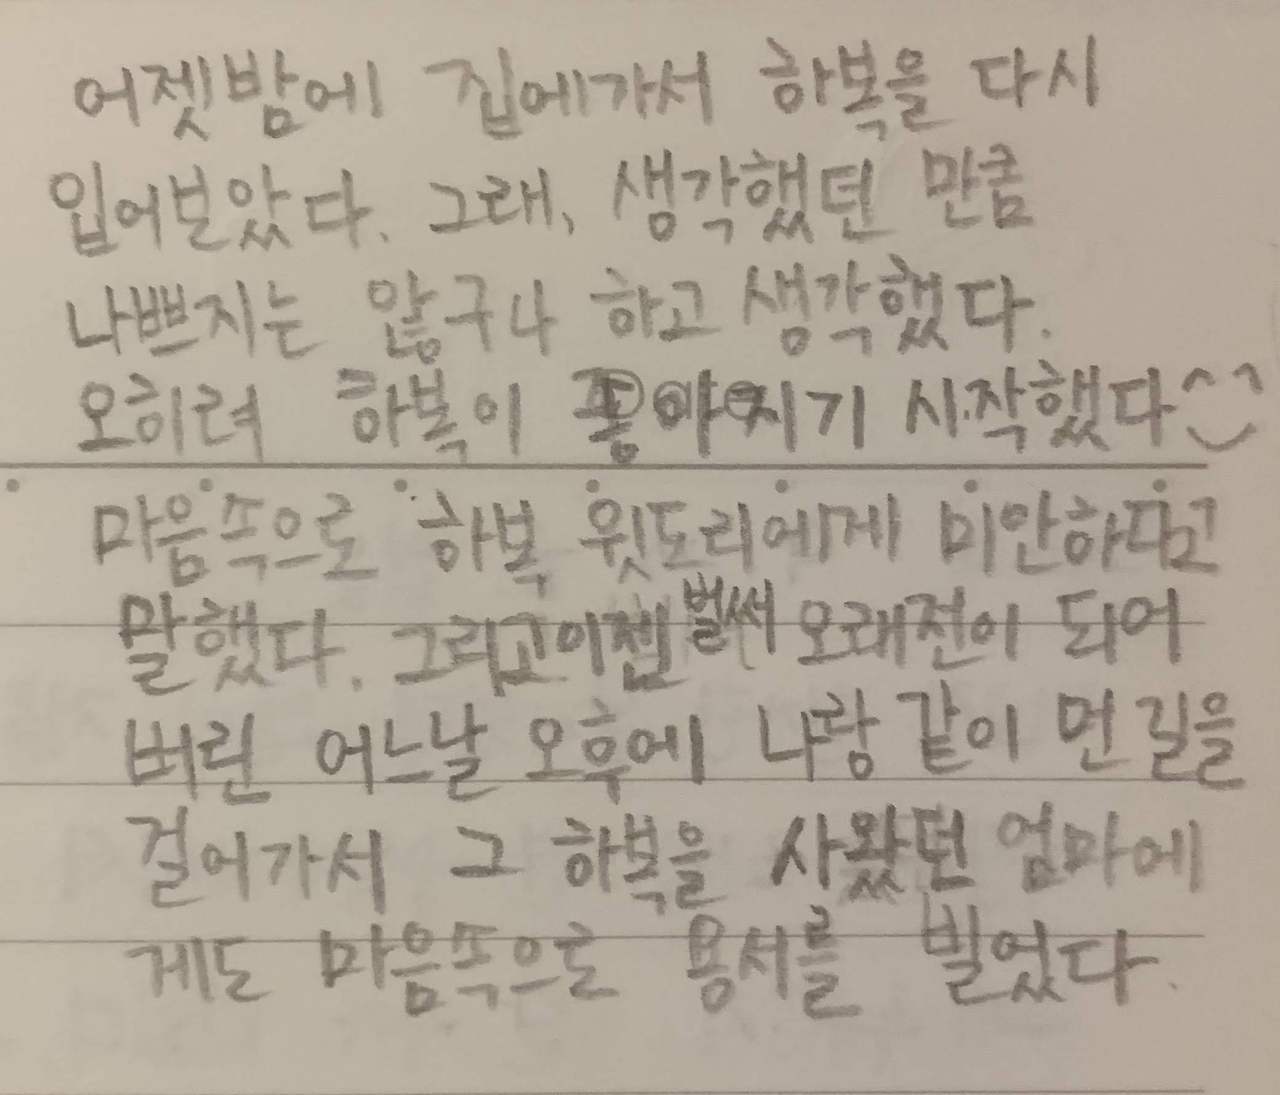 어젯밤에 집에가서 하복을 다시
입어보았다. 그래, 생각했던 만큼
나쁘지는 않구나 하고 생각했다.
오히려 하복이 좋아지기 시작했다^^
마음속으로 하복 윗도리에게 미안하다고
말했다. 그리고 이젠 벌써 오래전이 되어
버린 어느날 오후에 나랑 같이 먼 길을
걸어가서 그 하복을 사왔던 엄마에
게도 마음속으로 용서를 빌었다.